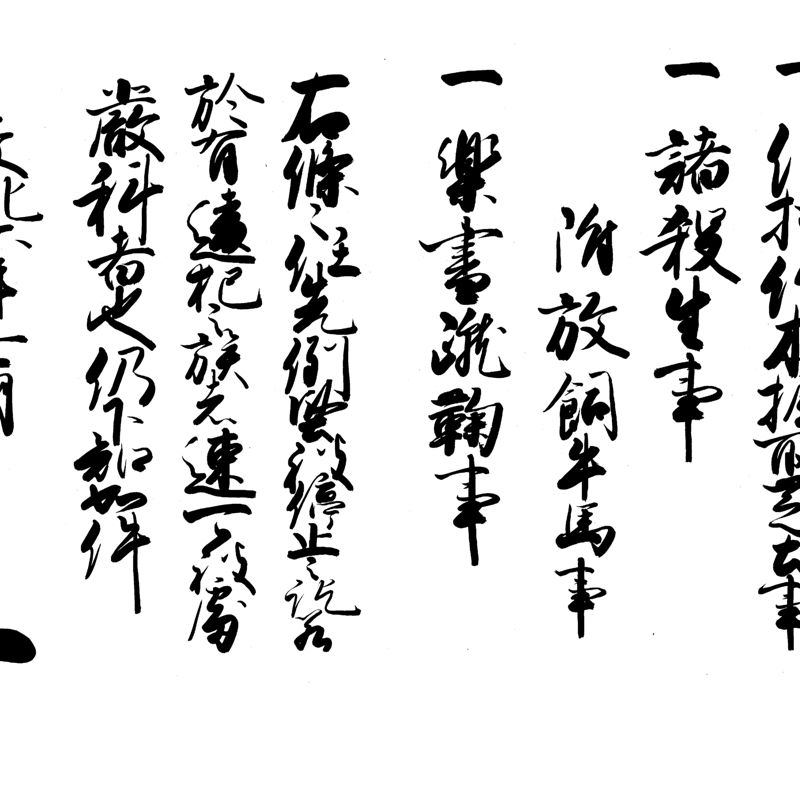 一 竹木 事
一 諸殺生事
附放飼牛馬事
一 楽書蹴鞠事
右條々任先例堅被停止之訖若
於有違犯之族者速可被處
嚴科者也仍下知如件
年 月